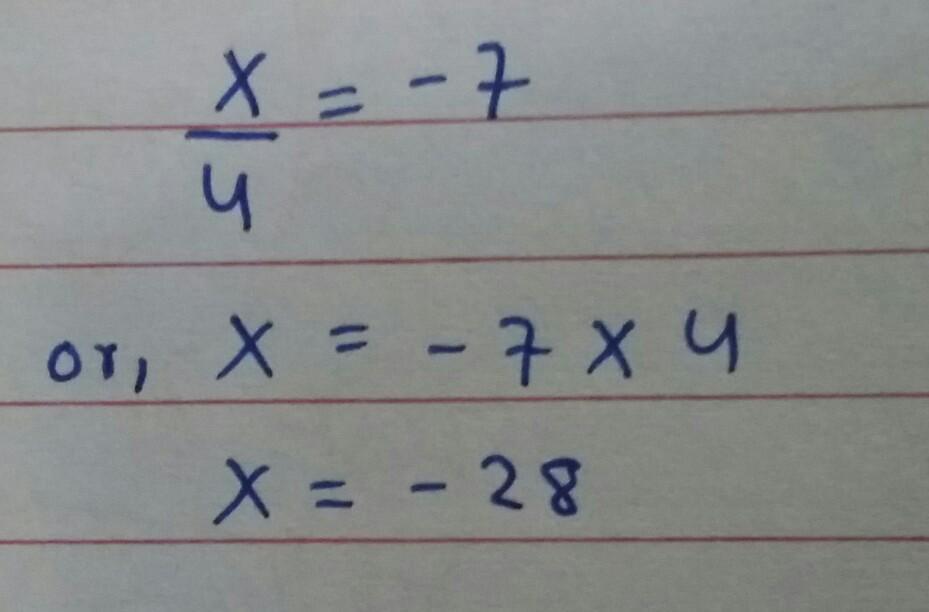 x/4 = -7
or, x = -7 x 4
x = -28